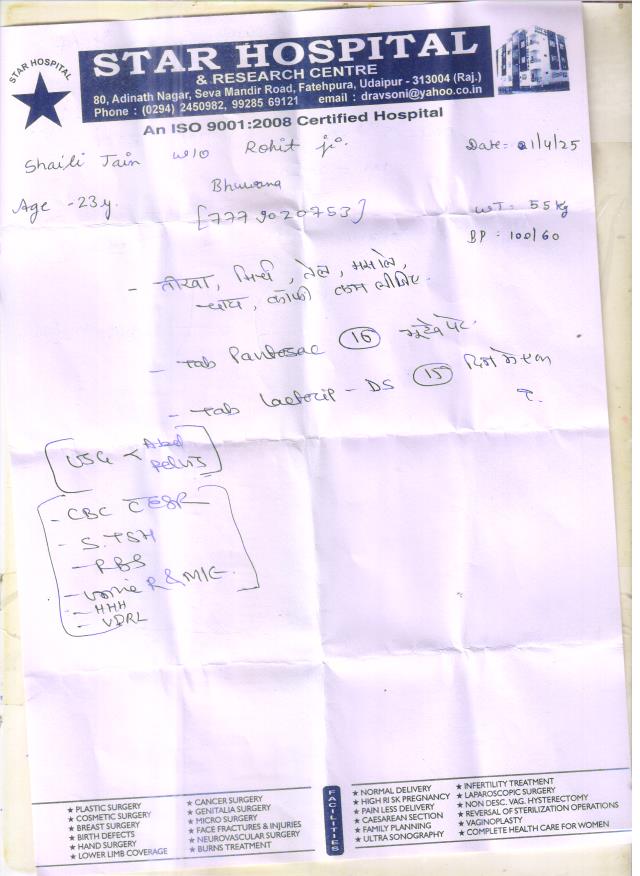 STAR HOSPITAL
STAR HOSPITAL
& RESEARCH CENTRE
80, Adinath Nagar, Seva Mandir Road, Fatehpura, Udaipur - 313004 (Raj.)
Phone : (0294) 2450982, 99285 69121 email : dravsoni@yahoo.co.in
An ISO 9001:2008 Certified Hospital
Shaili Jain w/o Rohit ji. Date= 21/4/25
Bhuwana
Age - 23y. [777 9020753] WT= 55 kg
BP = 100/60
- तीखा, मिर्च, तेल, मसाले,
चाय, कॉफी कम लीजिए.
- Tab Pantosac (16) भूखे पेट
- Tab - DS (15) दिन में एक
USG < Abd
Pelvis
- CBC C ESR
- S.TSH
- RBS
- Urine R & M/E
- HHH
- VDRL
★ PLASTIC SURGERY
★ COSMETIC SURGERY
★ BREAST SURGERY
★ BIRTH DEFECTS
★ HAND SURGERY
★ LOWER LIMB COVERAGE
★ CANCER SURGERY
★ GENITALIA SURGERY
★ MICRO SURGERY
★ FACE FRACTURES & INJURIES
★ NEUROVASCULAR SURGERY
★ BURNS TREATMENT
FACILITIES
★ NORMAL DELIVERY
★ HIGH RISK PREGNANCY
★ PAIN LESS DELIVERY
★ CAESAREAN SECTION
★ FAMILY PLANNING
★ ULTRA SONOGRAPHY
★ INFERTILITY TREATMENT
★ LAPAROSCOPIC SURGERY
★ NON DESC. VAG. HYSTERECTOMY
★ REVERSAL OF STERILIZATION OPERATIONS
★ VAGINOPLASTY
★ COMPLETE HEALTH CARE FOR WOMEN